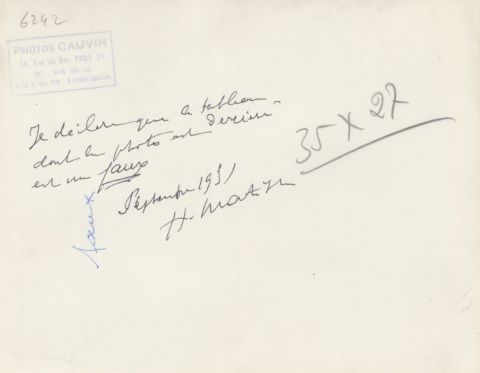 6242
PHOTOS CAUVIN
Rue du Bac, PARIS 7e
Je déclare que le tableau
dont la photo est derrière
est un faux
Septembre 1951
H. Matisse
faux
35 x 27